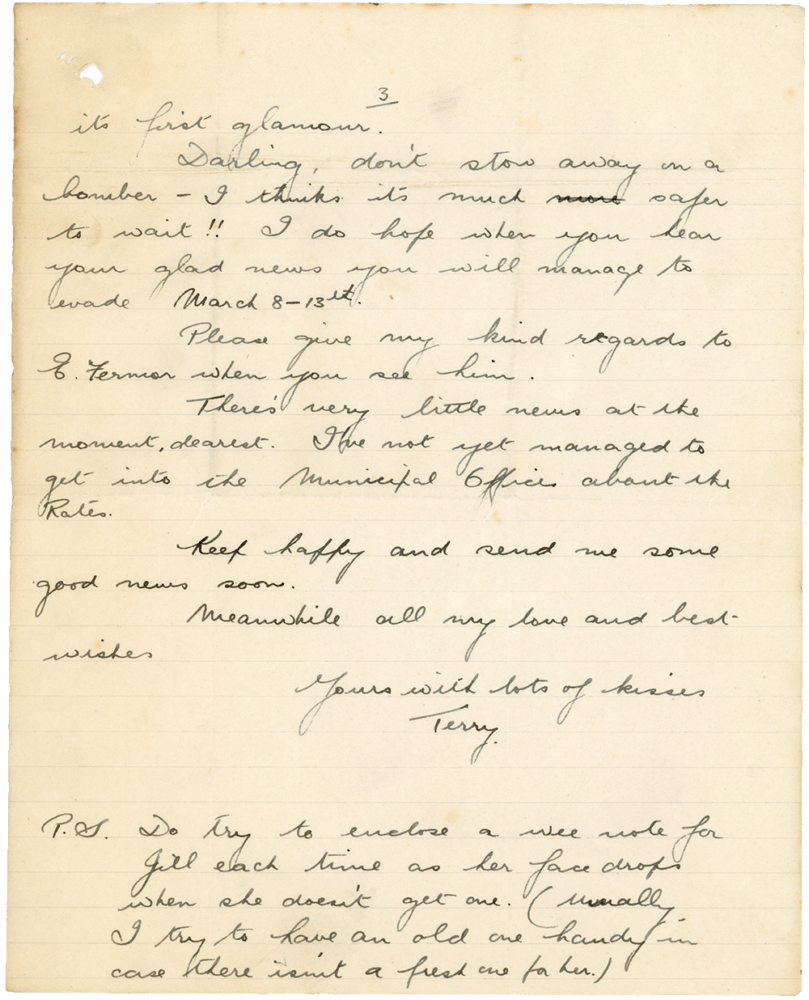 3
its first glamour.
Darling, don't stow away on a
bomber – I thinks its much more safer
to wait!! I do hope when you hear
your glad news you will manage to
evade March 8–13th.
Please give my kind regards to
E. Fermor when you see him.
There's very little news at the
moment, dearest. I've not yet managed to
get into the Municipal Offices about the
Rates.
Keep happy and send me some
good news soon.
Meanwhile all my love and best
wishes
Yours with lots of kisses
Terry.
P.S. Do try to enclose a wee note for
Jill each time as her face drops
when she doesn't get one. (Usually
I try to have an old one handy in
case there isn't a fresh one for her.)